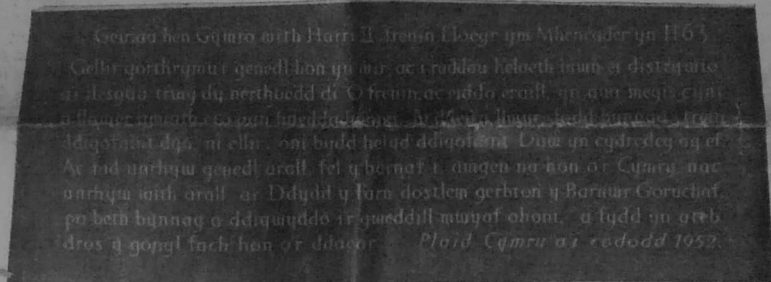 Geiriau hen Gymro wrth Harri II, frenin Lloegr ym Mhencader yn 1163
Gellir gorthrymu'r genedl hon yn awr ac i raddau helaeth iawn ei distrywio
a'i llesgau trwy dy nerthoedd di, O frenin, ac eiddo eraill, yn awr megis cynt
a llawer gwaith eto pan haedda hynny. Ai dileu'n llwyr fodd bynnag trwy
ddigofaint dyn, ni ellir, oni bydd hefyd ddigofaint Duw yn cydredeg ag ef.
Ac nid unrhyw genedl arall, fel y barnaf i, amgen na hon o'r Cymry nac
unrhyw iaith arall, ar Ddydd y Farn dostlem gerbron y Barnwr Goruchaf,
pa beth bynnag a ddigwyddo i'r gweddill mwyaf ohoni, a fydd yn ateb
dros y gongl fach hon o'r ddaear. Plaid Cymru a'i cododd 1952.